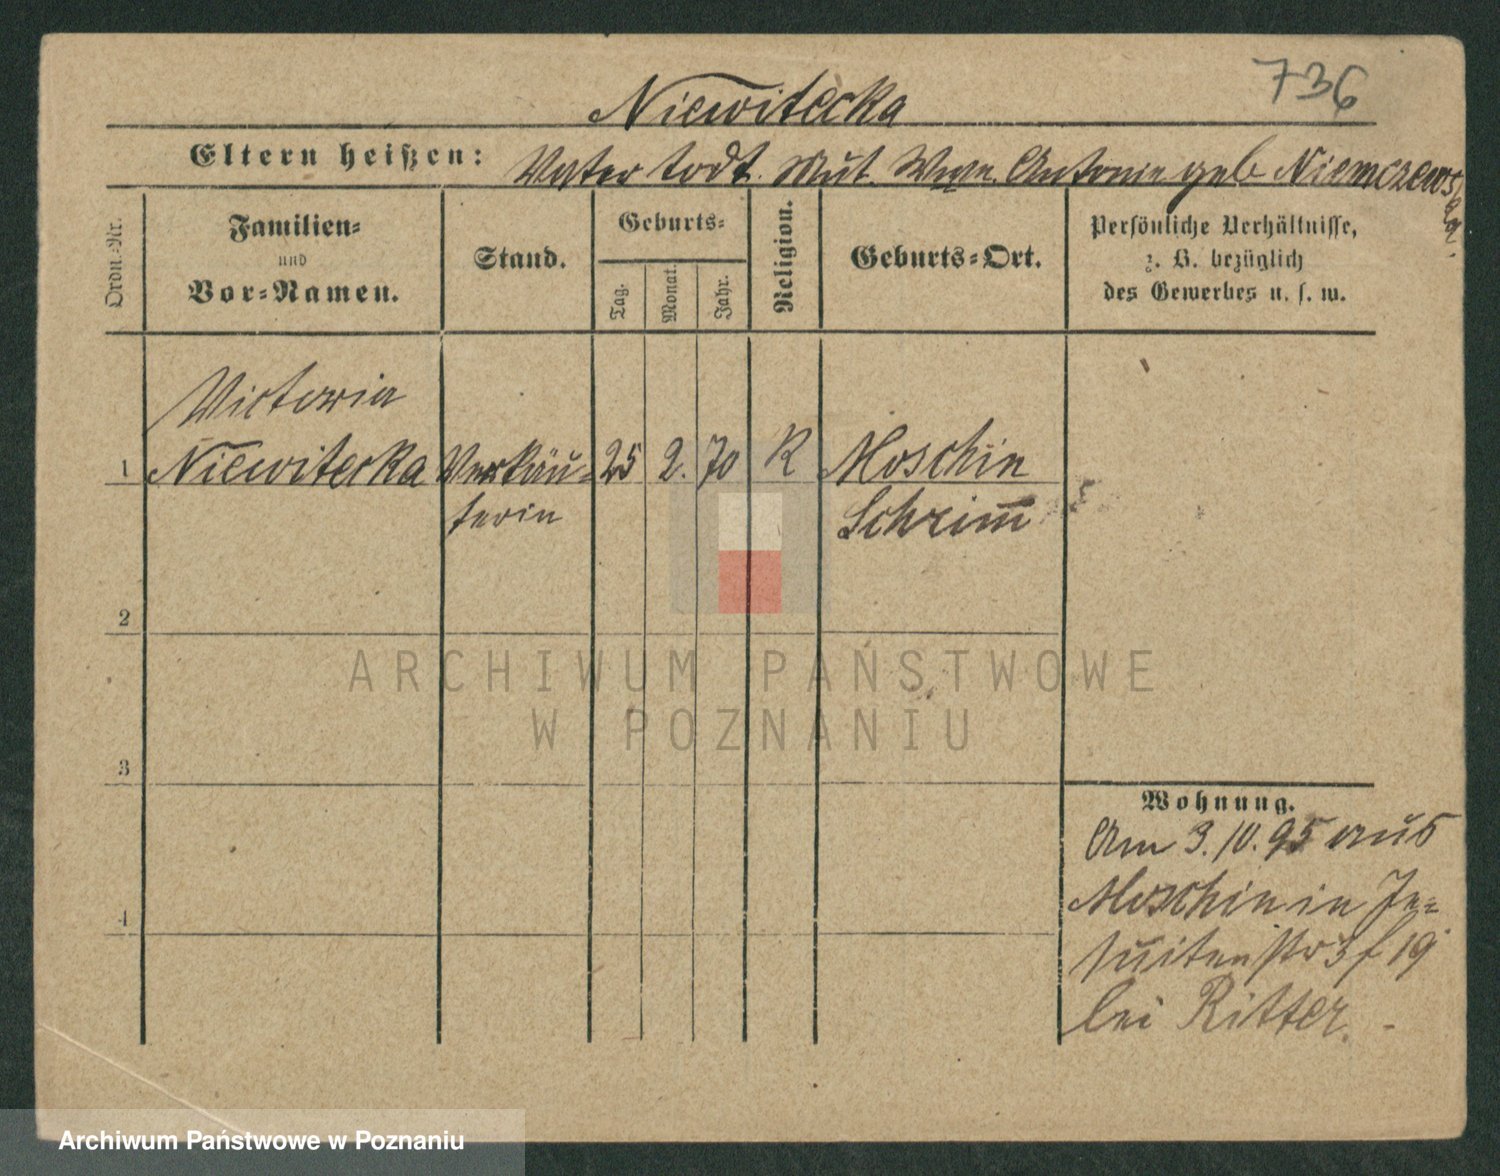 736
Niewitecka
Eltern heißen: Vater todt. Mut. Wwe. Antonie geb Niemczewska
Ordn.-Nr.
Familien-
und
Vor-Namen.
Stand.
Geburts-
Tag.
Monat.
Jahr.
Religion.
Geburts-Ort.
Persönliche Verhältnisse,
z. B. bezüglich
des Gewerbes u. s. w.
Victoria
1 Niewitecka Verkäu- 25 2. 70 K Moschin
ferin Schrimm
2
3
4
Wohnung.
Am 3.10.95 aus
Moschin in Je-
suitenstr 3 f 19
bei Ritter.
ARCHIWUM PAŃSTWOWE
W POZNANIU
Archiwum Państwowe w Poznaniu